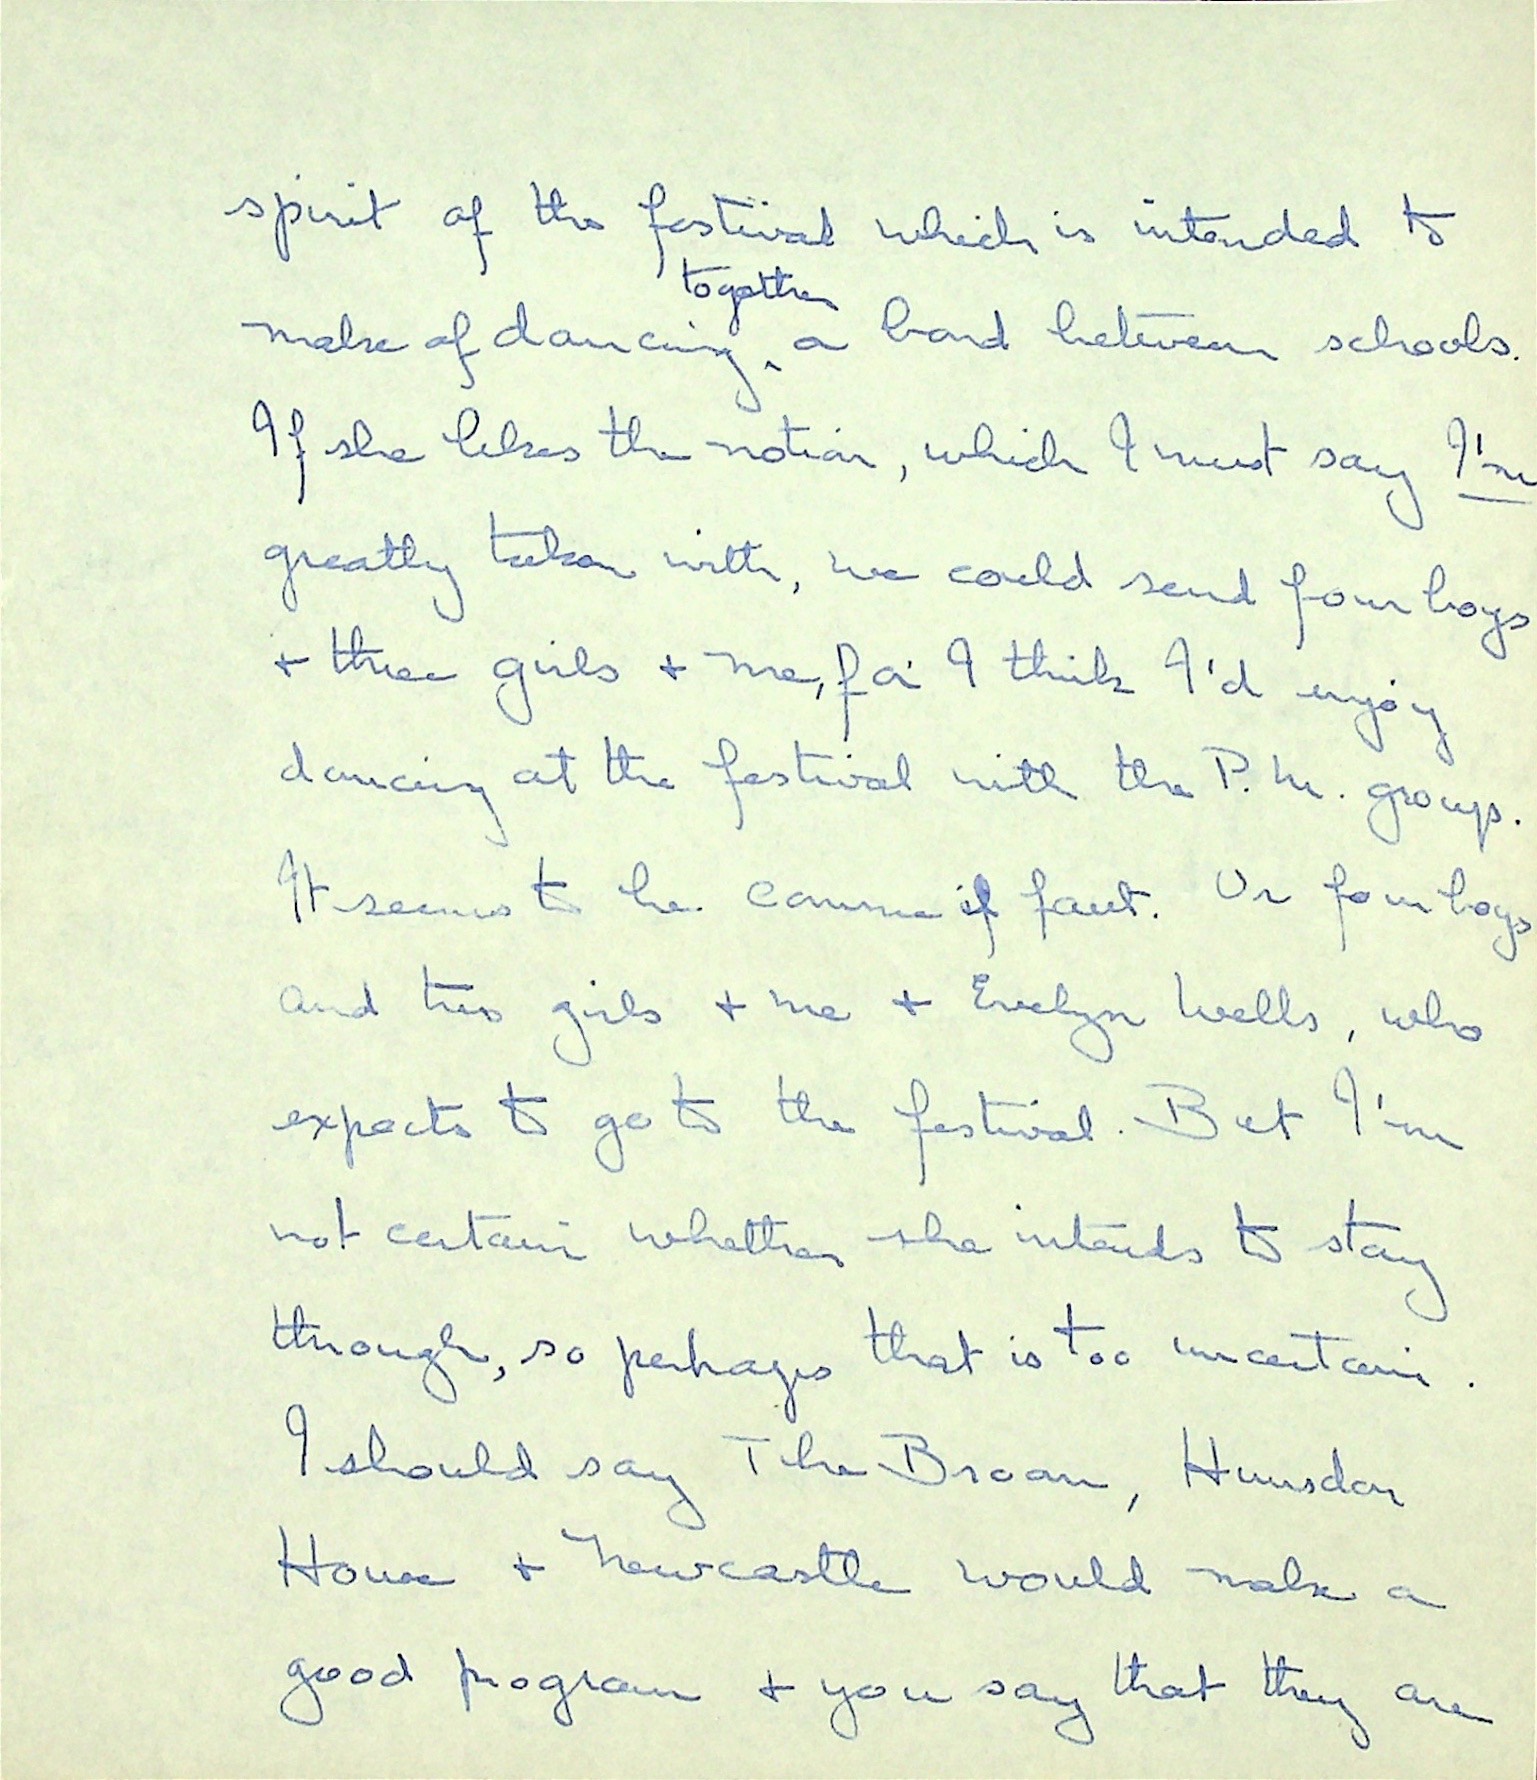 spirit of the festival which is intended to
together
make of dancing ‸ a bond between schools.
If she likes the notion, which I must say I'm
greatly taken with, we could send four boys
+ three girls + me, for I think I'd enjoy
dancing at the festival with the P.M. group.
It seems to be comme il faut. Or four boys
and two girls + me + Evelyn Wells, who
expects to go to the festival. But I'm
not certain whether she intends to stay
through, so perhaps that is too uncertain.
I should say The Broom, Hunsdon
House + Newcastle would make a
good program + you say that they are